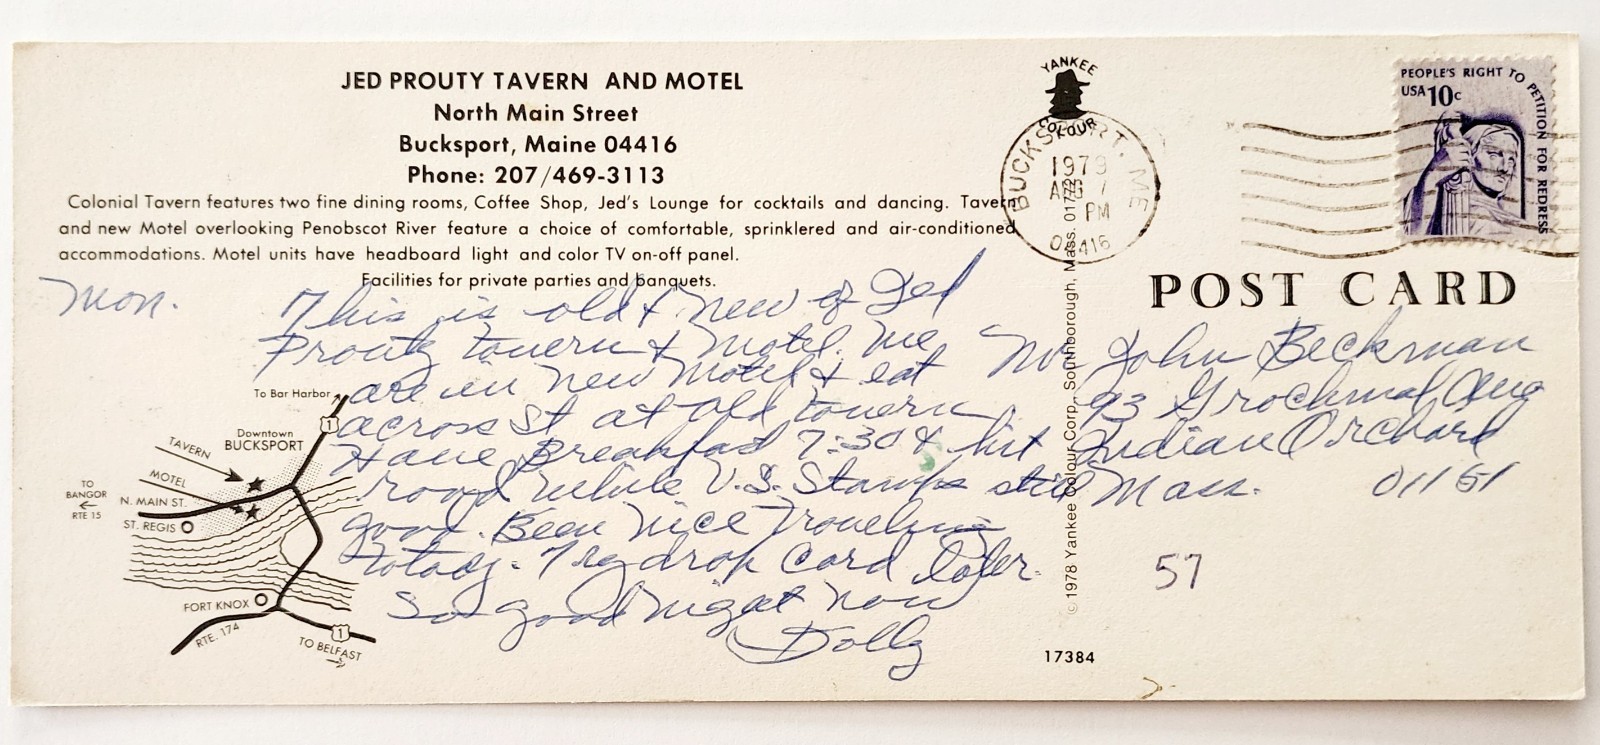 JED PROUTY TAVERN AND MOTEL
North Main Street
Bucksport, Maine 04416
Phone: 207/469-3113
Colonial Tavern features two fine dining rooms, Coffee Shop, Jed's Lounge for cocktails and dancing. Tavern
and new Motel overlooking Penobscot River feature a choice of comfortable, sprinklered and air-conditioned
accommodations. Motel units have headboard light and color TV on-off panel.
Facilities for private parties and banquets.
Mon.
This is old & new of Jed
Prouty tavern & Motel. We
are in new motel & eat
across St at old tavern
Have Breakfast 7:30 & hit
road while U.S. Stamps still
good. Been nice traveling
today. Try drop card later.
So good night now
Dolly
To Bar Harbor
1
Downtown
BUCKSPORT
TAVERN
MOTEL
TO
BANGOR
RTE 15
N. MAIN ST.
ST. REGIS
FORT KNOX
RTE. 174
1
TO BELFAST
YANKEE
COLOUR
BUCKSPORT, ME
1979
AUG 7
PM
04416
PEOPLE'S RIGHT TO PETITION FOR REDRESS
USA 10c
POST CARD
Mr John Beckman
93 Grochmal Ave
Indian Orchard
Mass. 01151
57
© 1978 Yankee Colour Corp., Southborough, Mass. 01772
17384